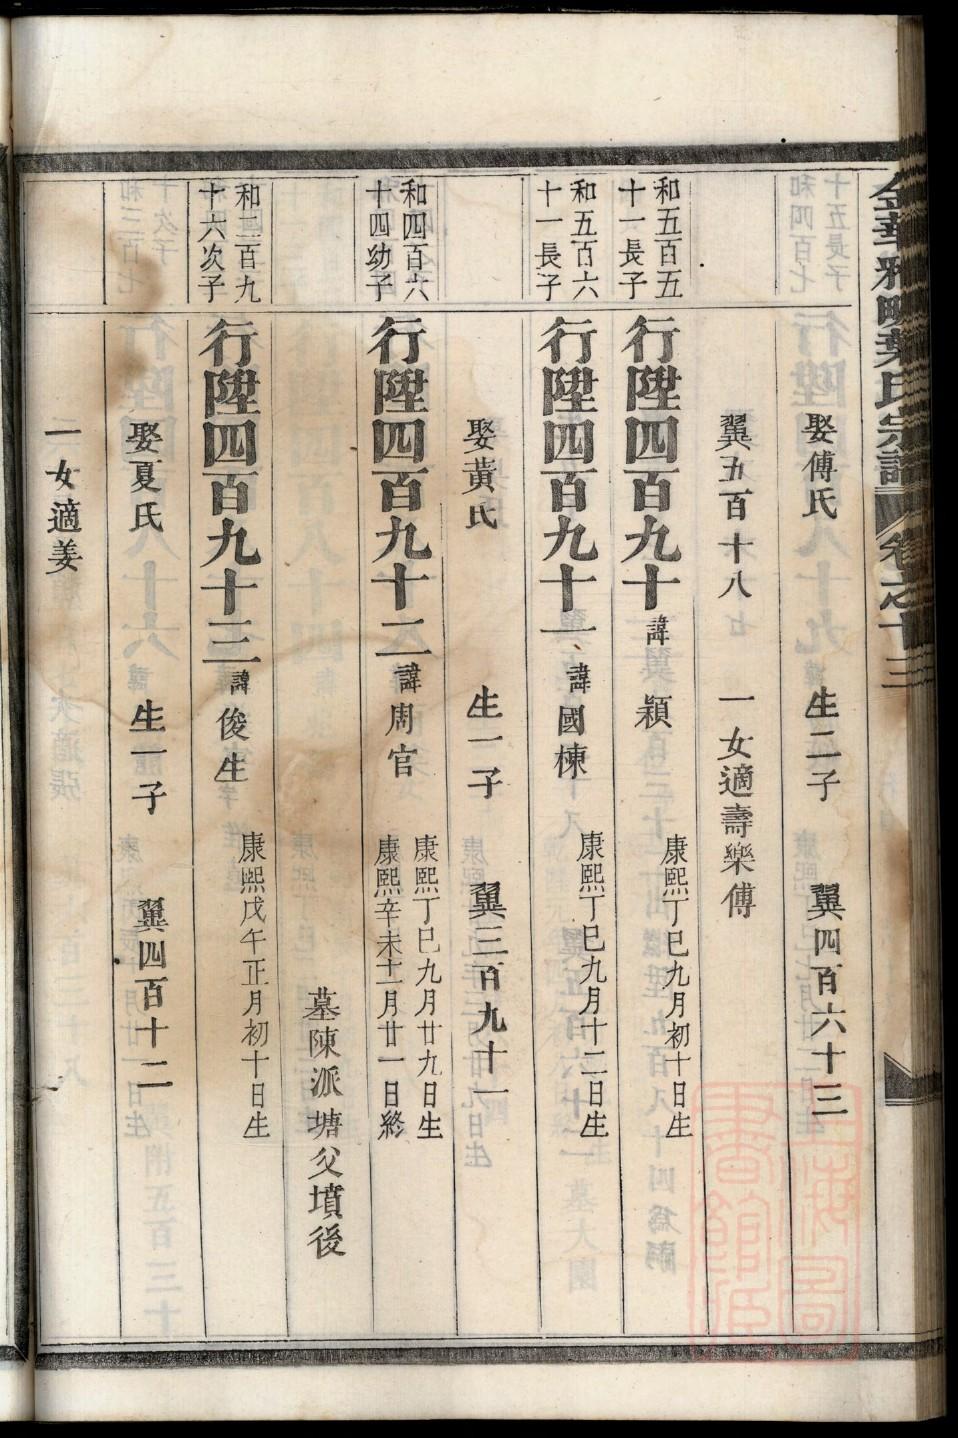 金華雅畈葉氏宗譜 卷之十三
娶傅氏 生二子 翼四百六十三
翼五百十八 一女適壽樂傅
和五百五
十一長子
行陞四百九十 諱 穎 康熙丁巳九月初十日生
和五百六
十一長子
行陞四百九十一 諱國棟 康熙丁巳九月十二日生
娶黃氏 生一子 翼三百九十一
和四百六
十四幼子
行陞四百九十二 諱周官 康熙丁巳九月廿九日生
康熙辛未十一月廿一日終
墓陳派塘父墳後
和三百九
十六次子
行陞四百九十三 諱俊生 康熙戊午正月初十日生
娶夏氏 生一子 翼四百十二
一女適姜
上海圖書館藏